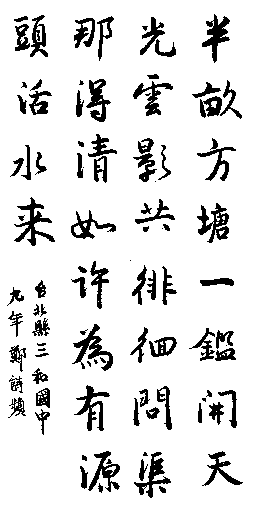 半畝方塘一鑑開天
光雲影共徘徊問渠
那得清如許為有源
頭活水来
台北縣三和國中
九年鄭詩蘋